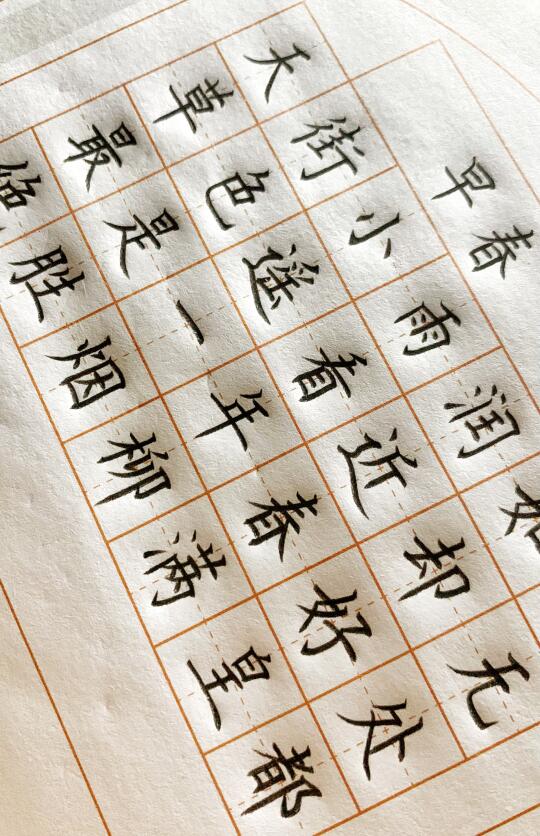 早春
天街小雨润如
草色遥看近却无
最是一年春好处
绝胜烟柳满皇都